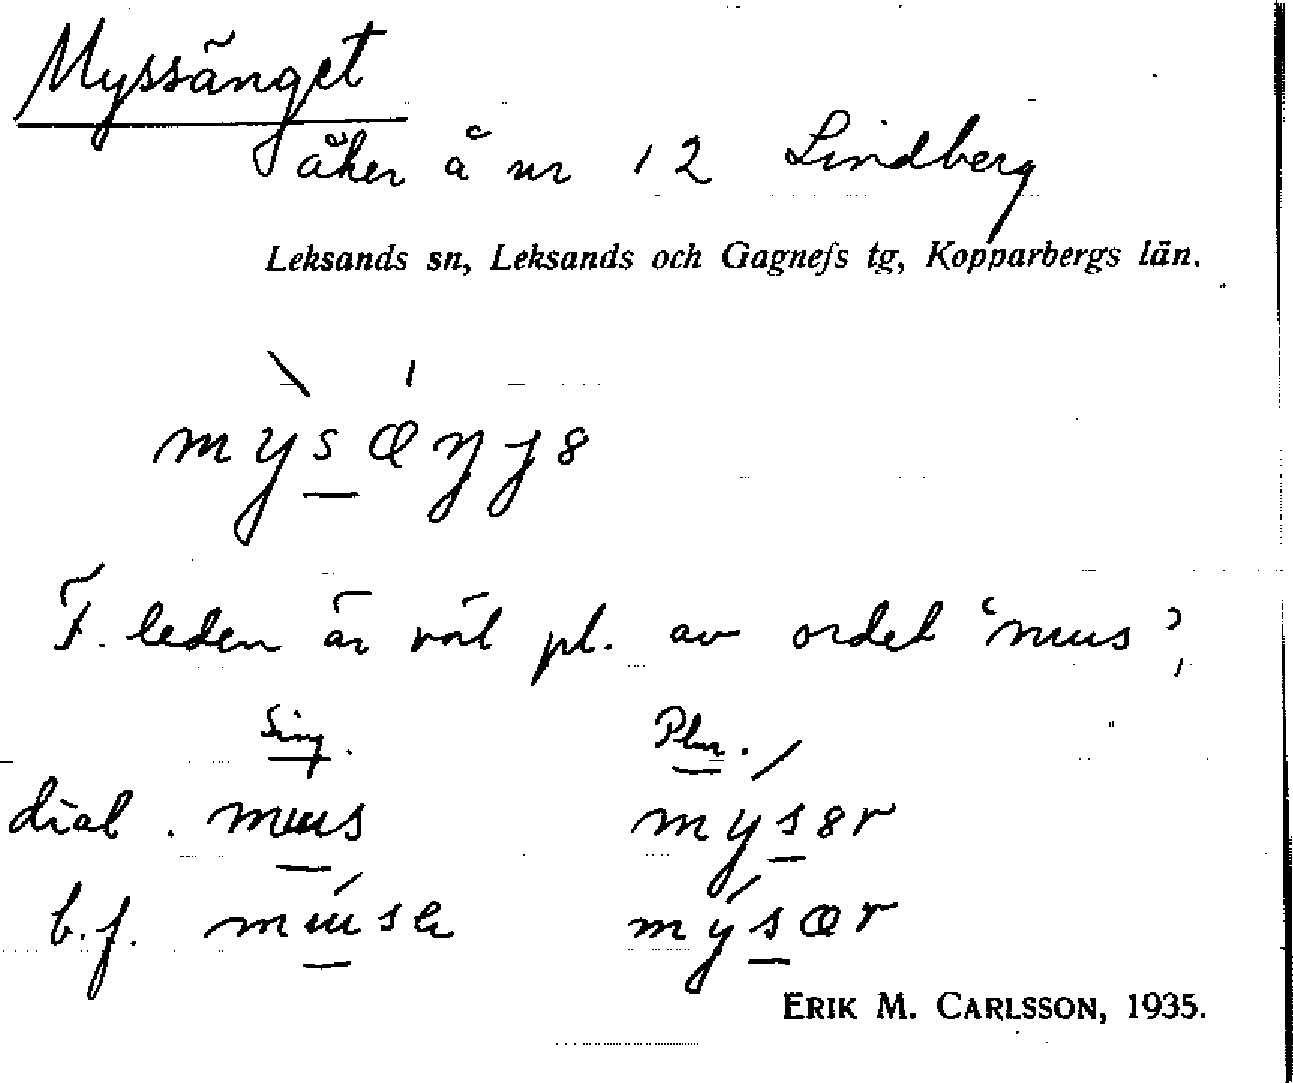 Myssänget
åker å nr 12 Lindberg
Leksands sn, Leksands och Gagnefs tg, Kopparbergs län.
mỳsæŋgə
F. leden är väl pl. av ordet 'mus',
Sing. Plur.
dial. mɯs mýsər
b.f. mɯ́sa mýsær
ERIK M. CARLSSON, 1935.